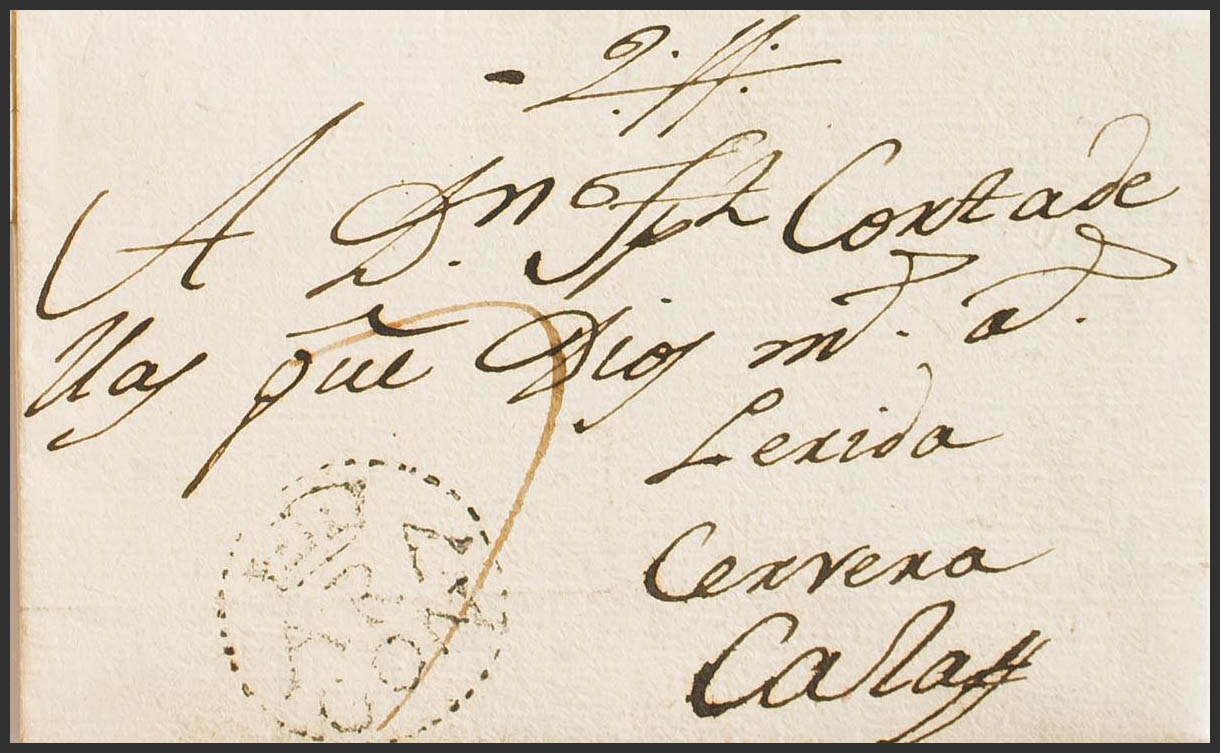 A Dn Jph Cortade
llas que Dios md. ad.
Lerida
Cervera
Calaf